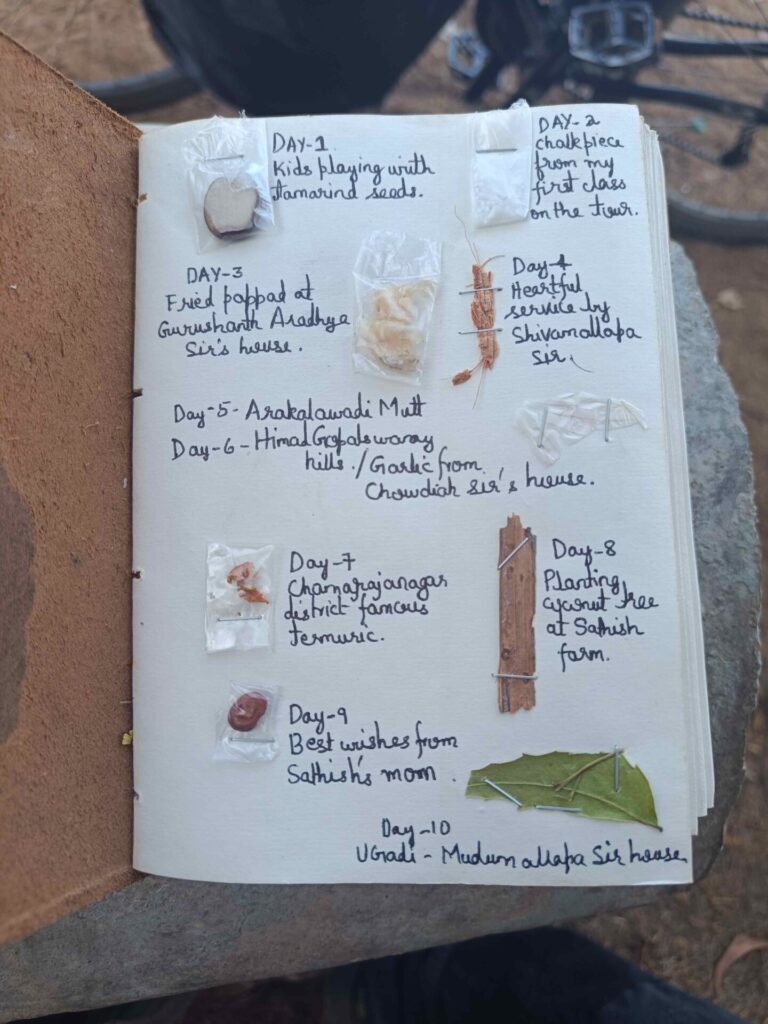 DAY-1
Kids playing with
tamarind seeds.
DAY-2
chalkpiece
from my
first class
on the tour.
DAY-3
Fried pappad at
Gurushanth Aradhya
Sir's house.
Day-4
Heartful
service by
Shivamallapa
Sir.
Day-5- Arakalawadi Mutt
Day-6-Himad Gopalswamy
hills./Garlic from
Chowdiah Sir's house.
Day-7
Chamarajanagar
district famous
Termuric.
Day-8
Planting
coconut tree
at Sathish
farm.
Day-9
Best wishes from
Sathish's mom.
Day-10
UGadi - Mudumallapa Sir house